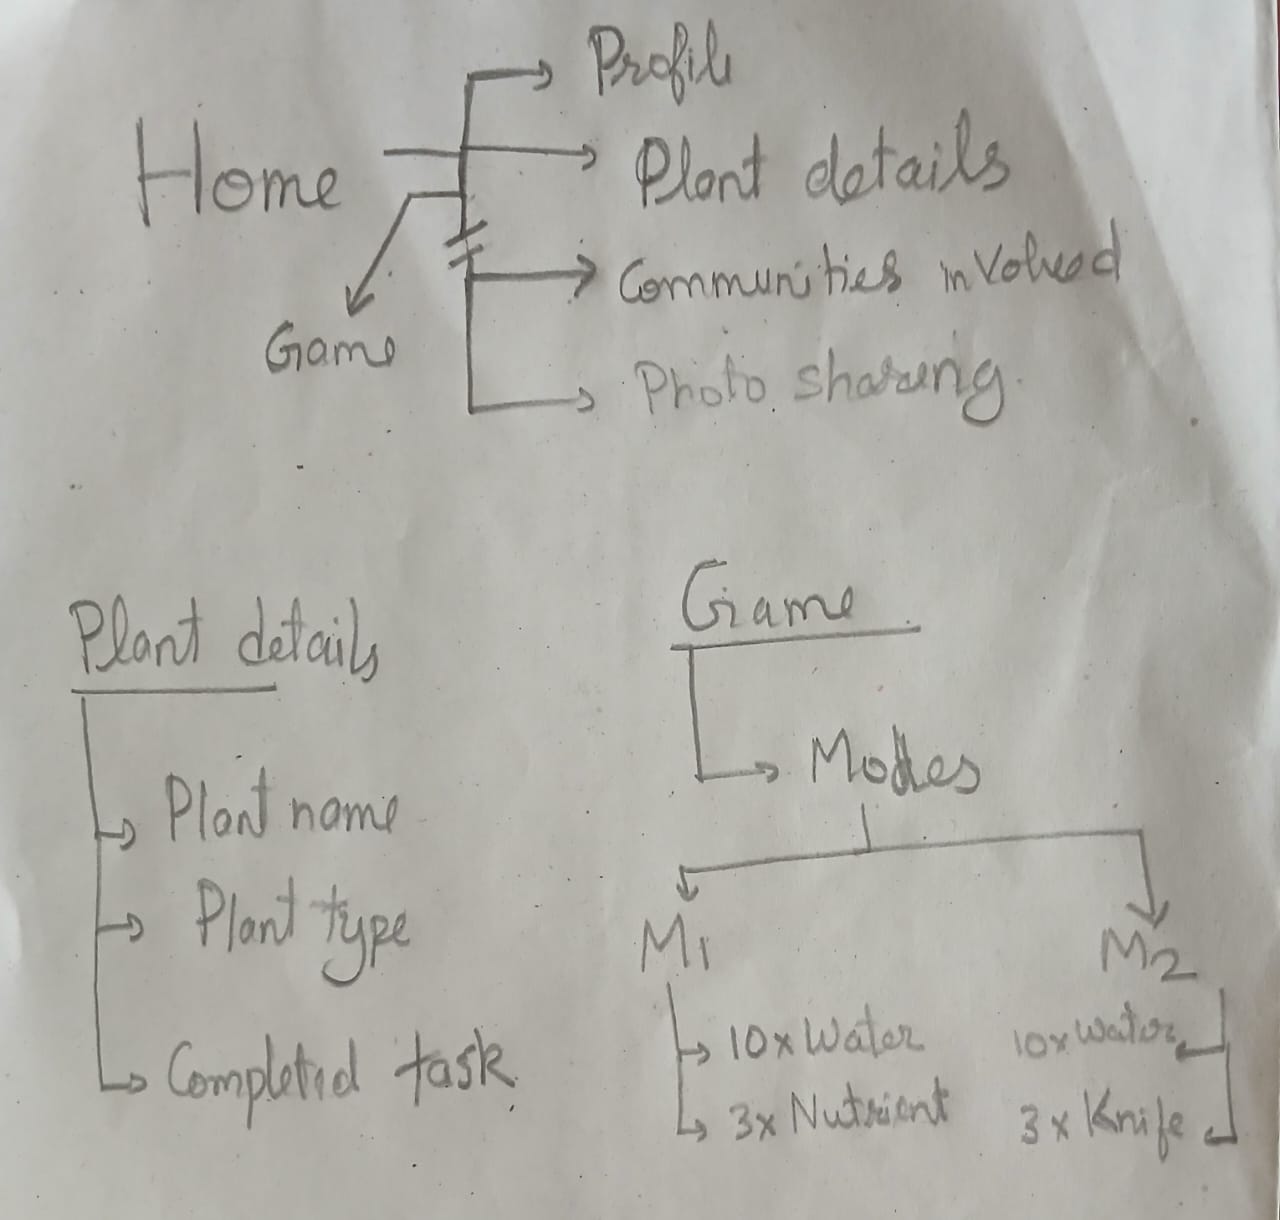 Profile
Home
Plant details
Communities involved
Game
Photo sharing.
Plant details
Plant name
Plant type
Completed task
Game
Modes
M1
M2
10x Water
3x Nutrient
10x water
3x Knife